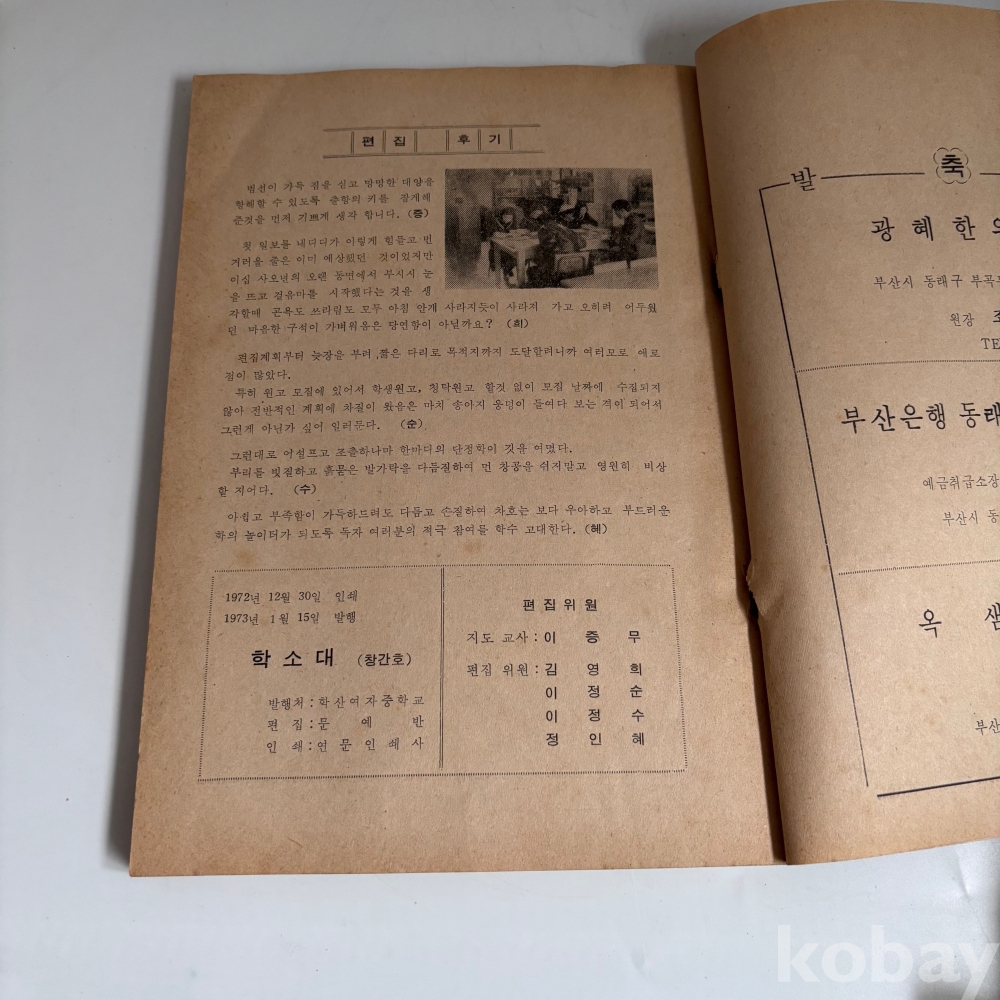 편집 후기
범선이 가득 짐을 싣고 망망한 대양을
항해할 수 있도록 출항의 키를 잡게해
준것을 먼저 기쁘게 생각 합니다. (증)
첫 일보를 내디디가 이렇게 힘들고 번
거러울 줄은 이미 예상했던 것이었지만
이십 사오년의 오랜 동면에서 부시시 눈
을 뜨고 걸음마를 시작했다는 것을 생
각할때 곤욕도 쓰라림도 모두 아침 안개 사라지듯이 사라져 가고 오히려 어두웠
던 마음한 구석이 가벼워옴은 당연함이 아닐까요? (희)
편집계획부터 늦장을 부려 짧은 다리로 목적지까지 도달할려니까 여러모로 애로
점이 많았다.
특히 원고 모집에 있어서 학생원고, 청탁원고 할것 없이 모집 날짜에 수집되지
않아 전반적인 계획에 차질이 왔음은 마치 송아지 웅덩이 들여다 보는 격이 되어서
그런게 아닌가 싶어 일러둔다. (순)
그런대로 어설프고 조촐하나마 한마디의 단정학이 깃을 여몄다.
부리를 빗질하고 흙묻은 발가락을 다듬질하여 먼 창공을 쉬지말고 영원히 비상
할 지어다. (수)
아쉽고 부족함이 가득하드려도 다듬고 손질하여 차호는 보다 우아하고 부드러운
학의 놀이터가 되도록 독자 여러분의 적극 참여를 학수 고대한다. (혜)
1972년 12월 30일 인쇄
1973년 1월 15일 발행
학소대 (창간호)
발행처 : 학산여자중학교
편집 : 문예반
인쇄 : 연문인쇄사
편집위원
지도 교사 : 이증무
편집 위원 : 김영희
이정순
이정수
정인혜
발 축
광혜한
부산시 동래구
원장
TE
부산은행 동래
예금취급소장
부산시 동
옥샘
부산
kobay